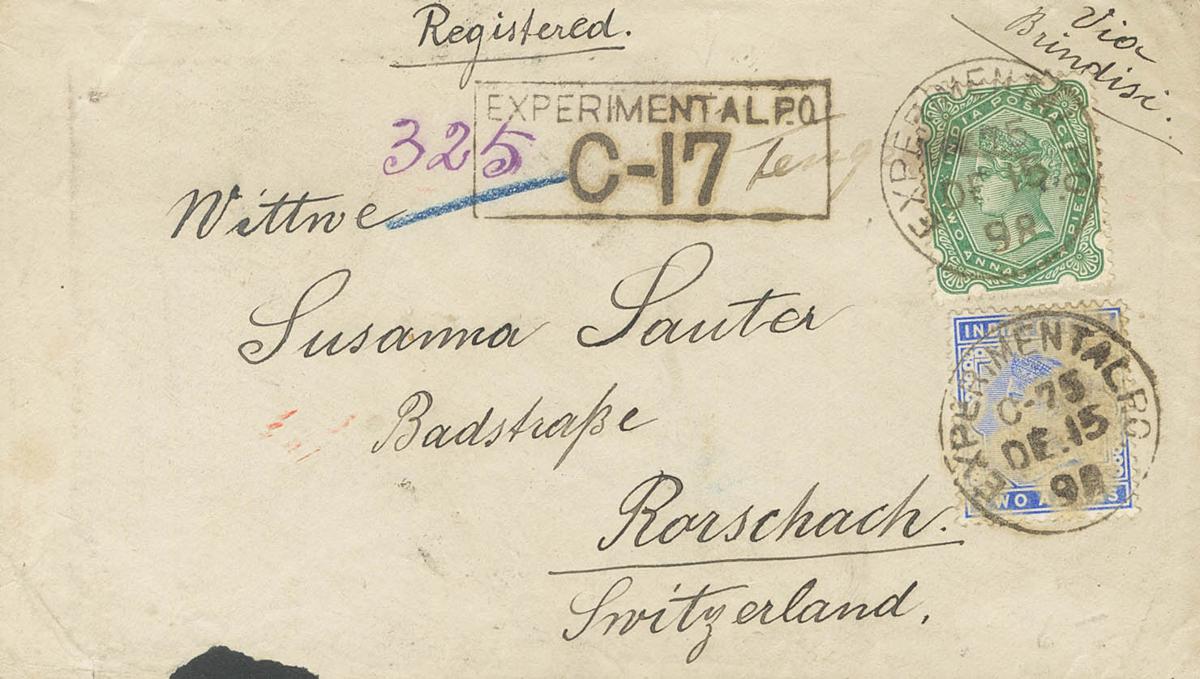 Registered.
Via
Brindisi.
EXPERIMENTAL P.O.
C-17
325
Wittwe
Susanna Sauter
Badstraße
Rorschach.
Switzerland.
INDIA POSTAGE
TWO ANNAS SIX PIES
EXPERIMENTAL P.O.
75
DE.15
98
INDIA
TWO ANNAS
EXPERIMENTAL P.O.
C-75
DE.15
98